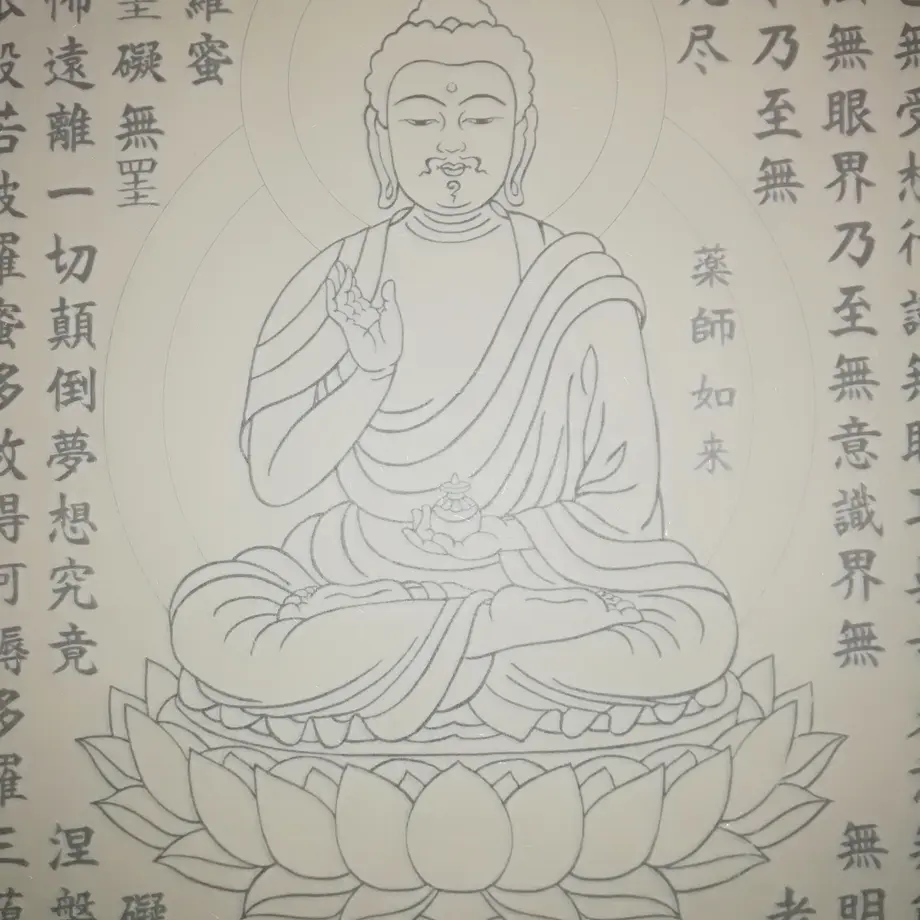 無受想行識無
法無眼界乃至無意識界無
無明
乃至無
老
尽
薬師如来
羅蜜
罣礙無罣
礙
怖遠離一切顛倒夢想究竟
涅槃
般若波羅蜜多故得阿耨多羅三藐